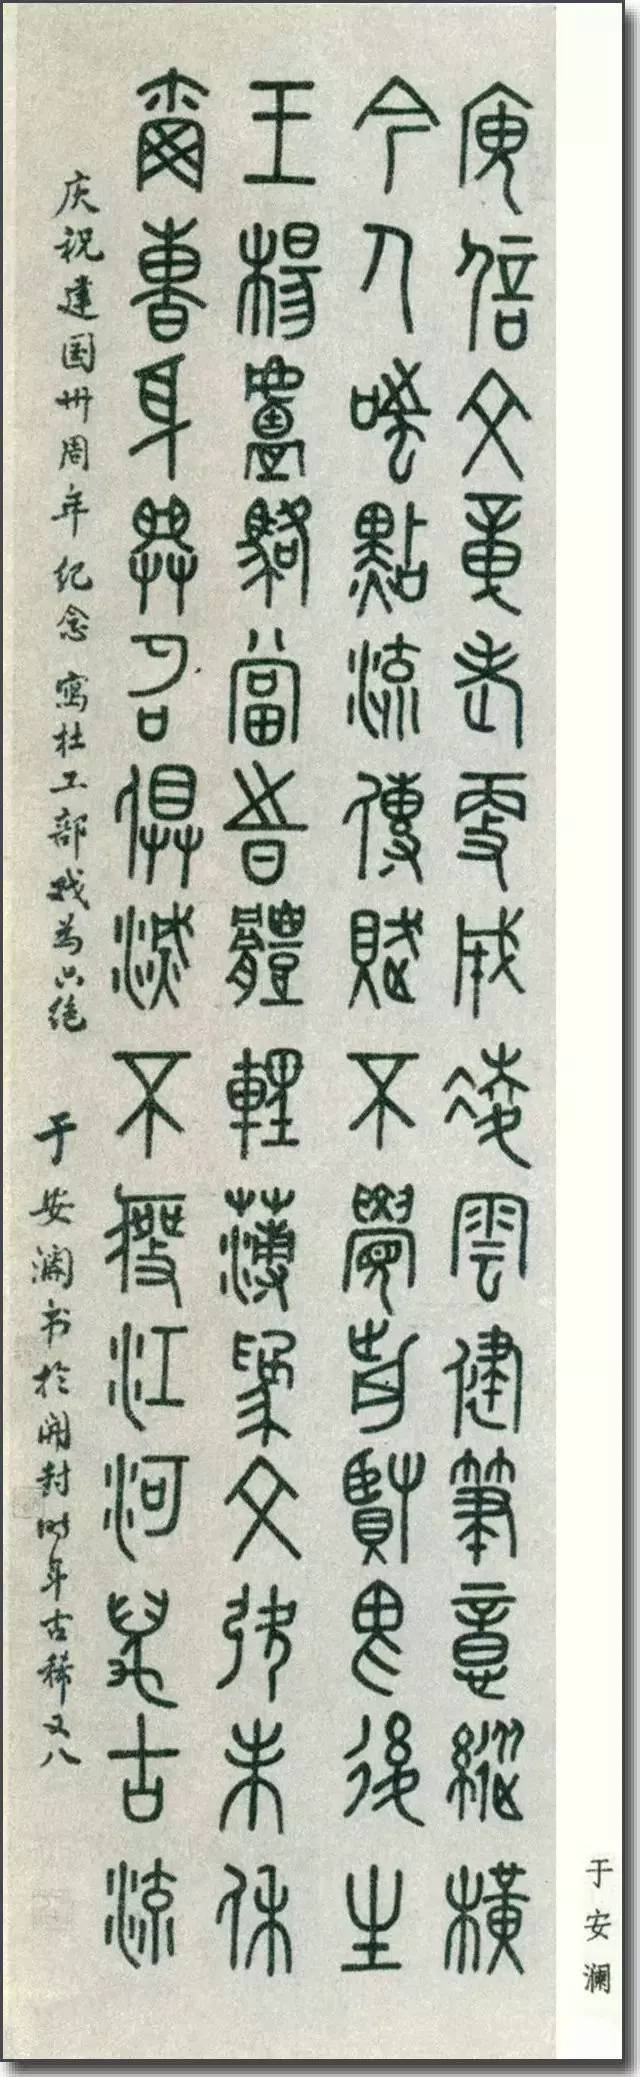 庾信文章老更成凌雲健筆意縱橫
今人嗤點流傳賦不覺前賢畏後生
王楊盧駱當旹體輕薄為文弞未休
爾曹身與名俱滅不廢江河萬古流
庆祝建国卅周年纪念 寫杜工部戏为六绝 于安澜书於開封时年古稀又八
于安澜